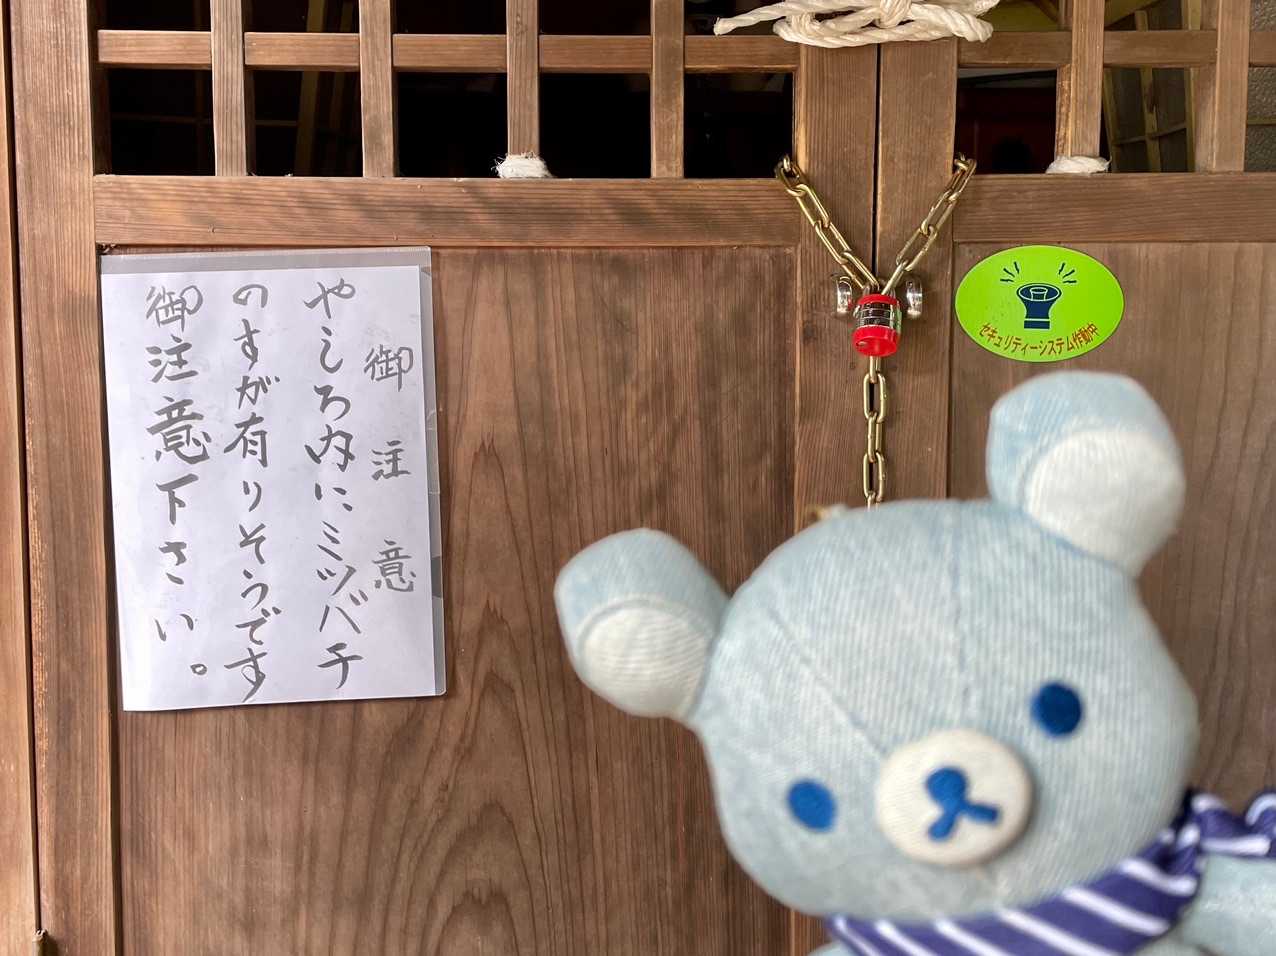 御注意
やしろ内にミツバチ
のすが有りそうです
御注意下さい。
セキュリティーシステム作動中